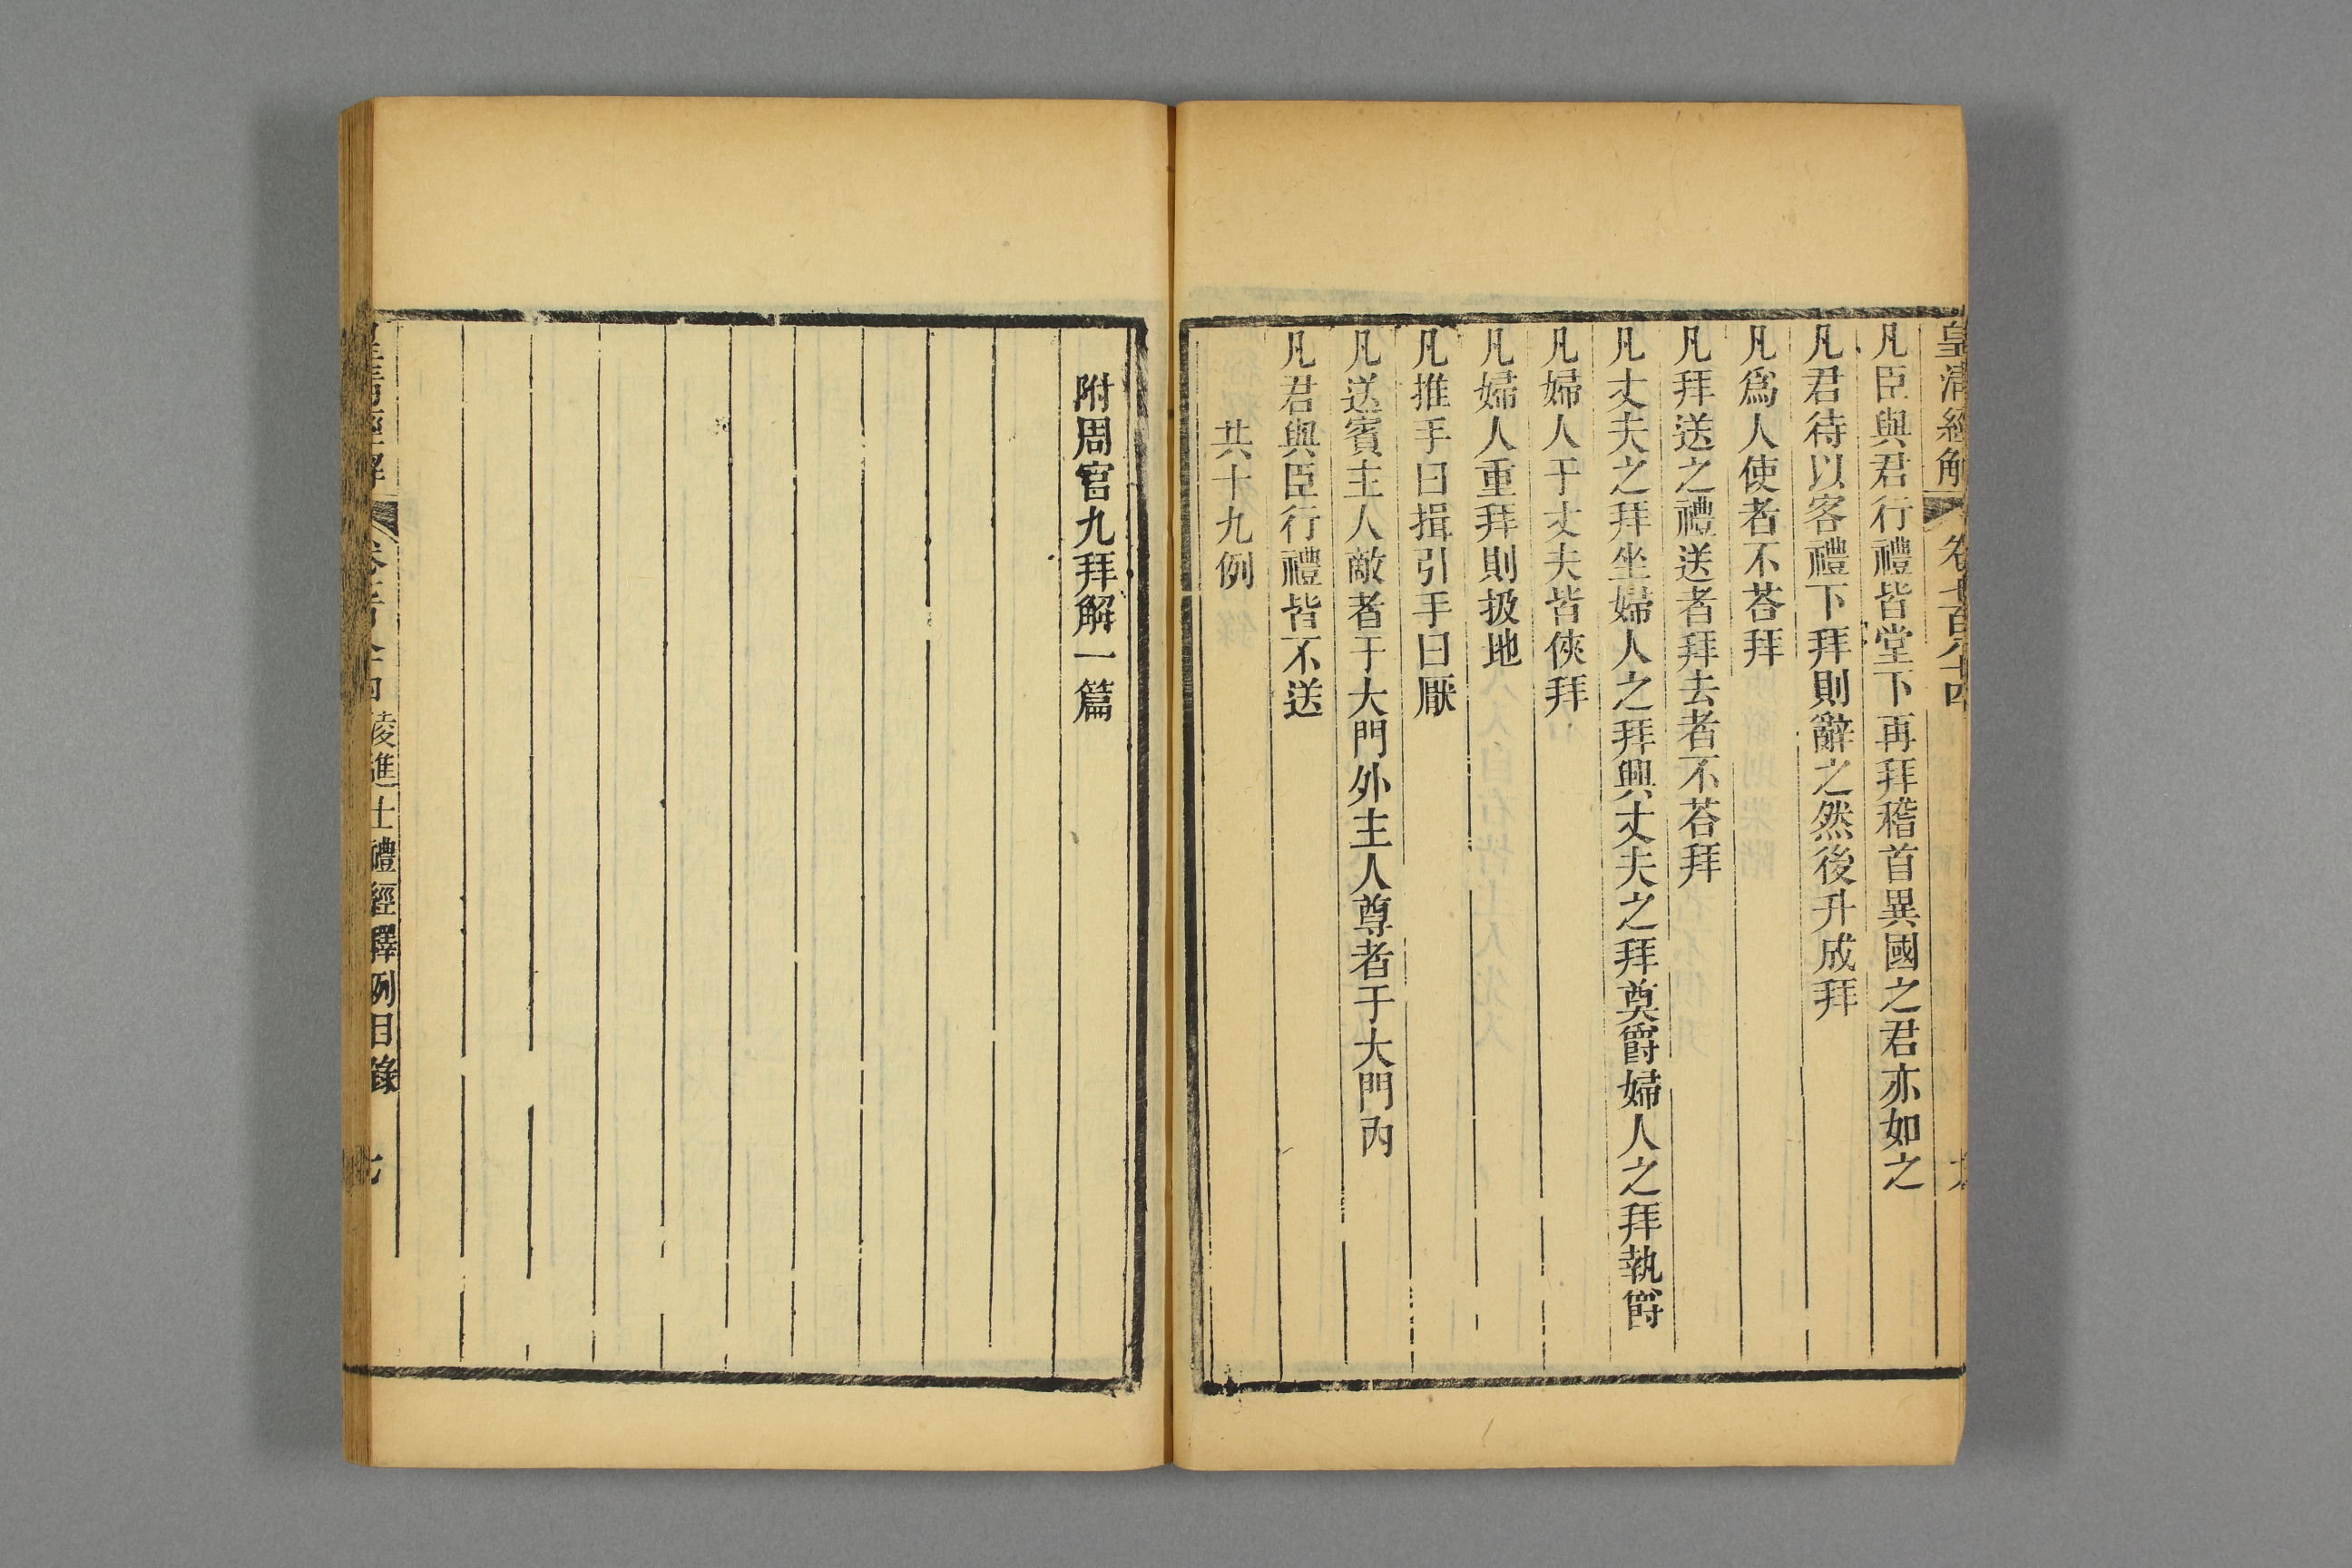 皇清經解 卷七百八十四 六
凡臣與君行禮皆堂下再拜稽首異國之君亦如之
凡君待以客禮下拜則辭之然後升成拜
凡爲人使者不荅拜
凡拜送之禮送者拜去者不荅拜
凡丈夫之拜坐婦人之拜興丈夫之拜奠爵婦人之拜執爵
凡婦人于丈夫皆俠拜
凡婦人重拜則扱地
凡推手曰揖引手曰厭
凡送賓主人敵者于大門外主人尊者于大門內
凡君與臣行禮皆不送
共十九例
附周官九拜解一篇
皇清經解 卷七百八十四 淩進士禮經釋例目錄 七